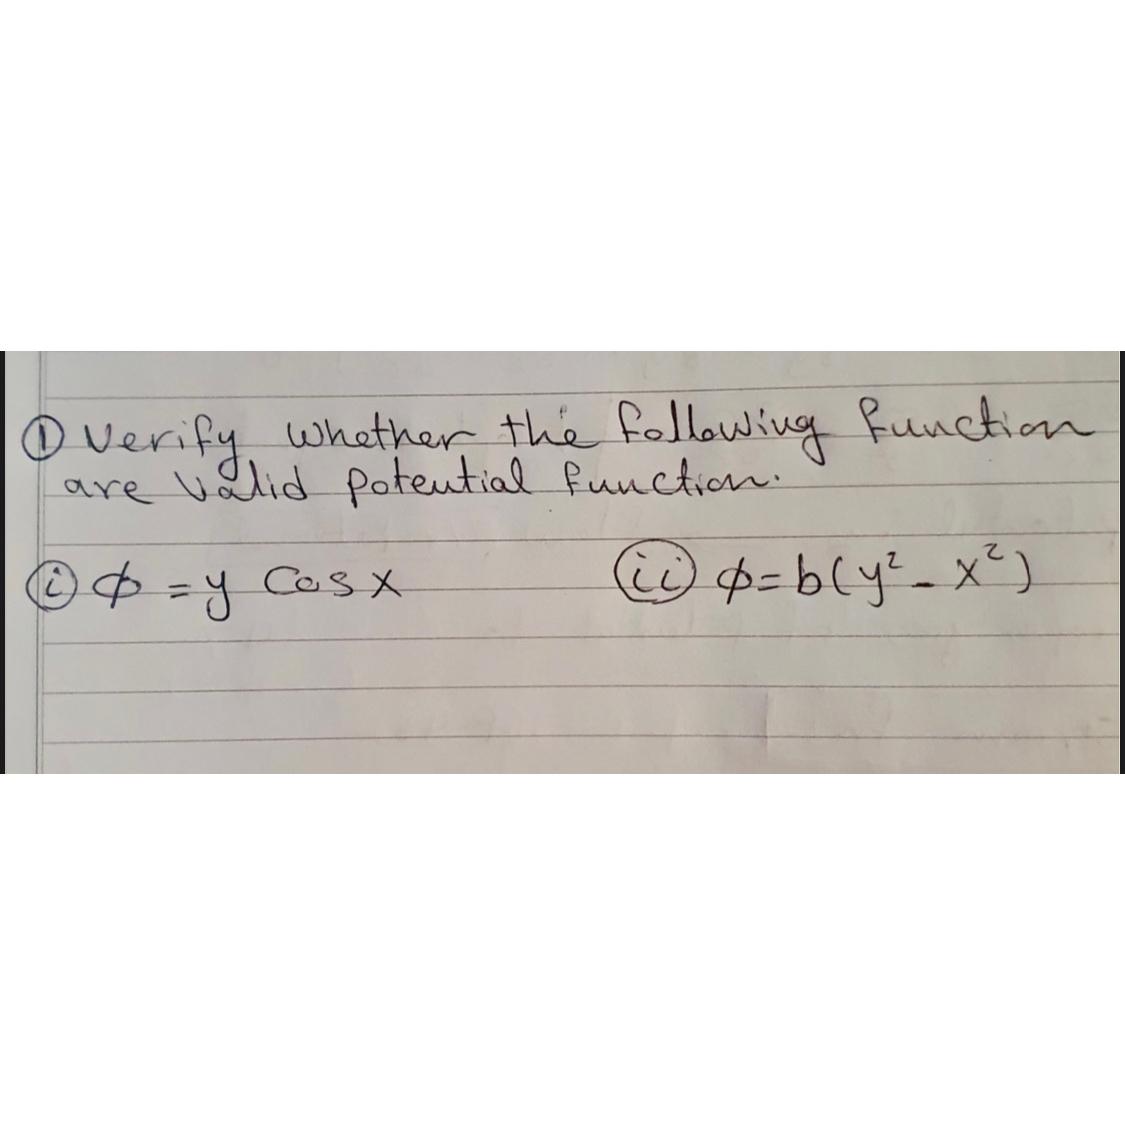 ① Verify whether the following function
are valid potential function.
ⓘ ϕ = y Cos x
ⓘⓘ ϕ = b(y² - x²)